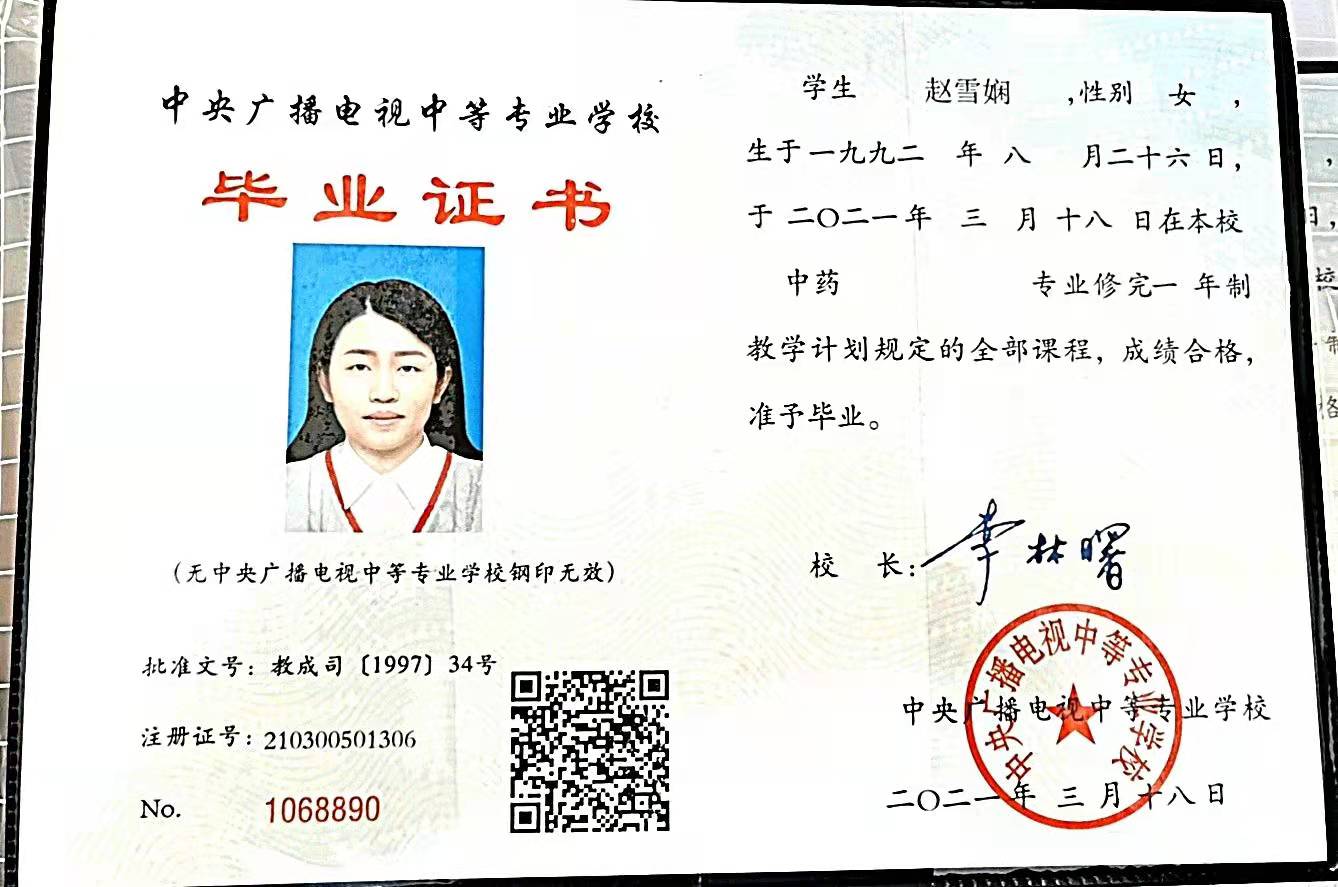 中央广播电视中等专业学校
毕业证书
（无中央广播电视中等专业学校钢印无效）
批准文号：教成司〔1997〕34号
注册证号：210300501306
No. 1068890
学生 赵雪娴 ,性别 女 ，
生于一九九二 年 八 月二十六 日，
于 二〇二一年 三 月 十八 日在本校
中药 专业修完一 年制
教学计划规定的全部课程，成绩合格，
准予毕业。
校 长：李林曙
中央广播电视中等专业学校
中央广播电视中等专业学校
二〇二一年 三 月 十八日
，
日，
校
制
格